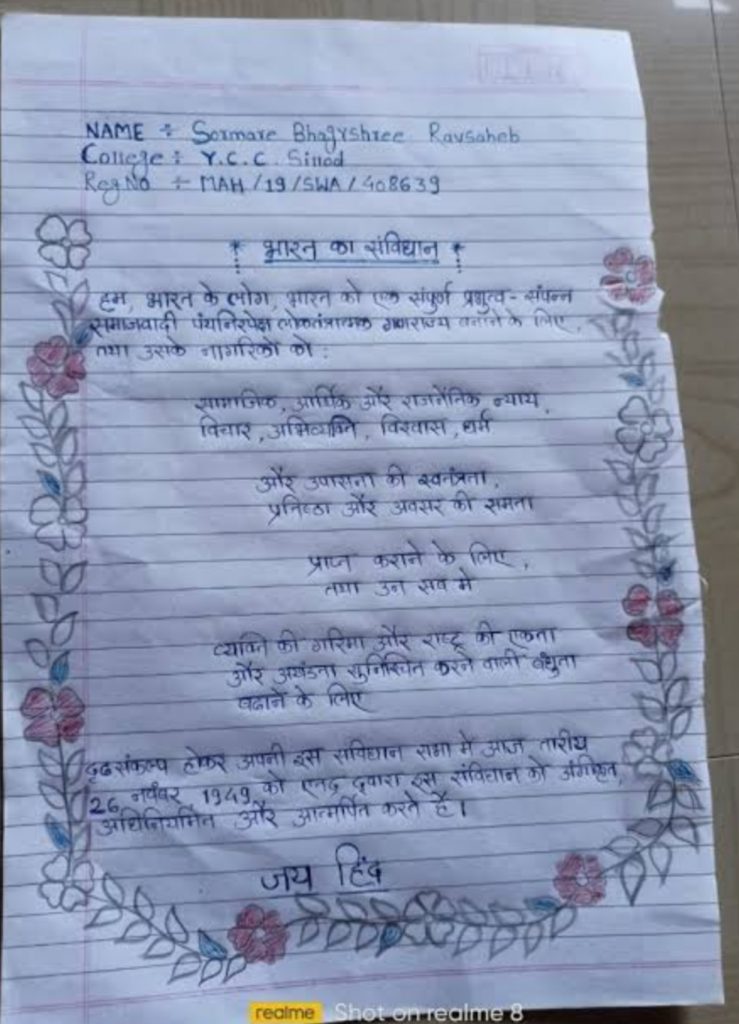 NAME ÷ Sormare Bhagyshree Ravsaheb
College : Y.C.C. Sillod
Reg No ÷ MAH/19/SWA/408639
* भारत का संविधान *
हम, भारत के लोग, भारत को एक संपुर्ण प्रभुत्व - संपन्न
समाजवादी पंथनिरपेक्ष लोकतंत्रात्मक गणराज्य बनाने के लिए,
तथा उसके नागरिको को :
सामाजिक, आर्थिक और राजनैतिक न्याय,
विचार, अभिव्यक्ति, विश्वास, धर्म
और उपासना की स्वतंत्रता,
प्रतिष्ठा और अवसर की समता
प्राप्त कराने के लिए,
तथा उन सब मे
व्यक्ति की गरिमा और राष्ट्र की एकता
और अखंडता सुनिश्चित करने वाली बंधुता
बढाने के लिए
दृढसंकल्प होकर अपनी इस संविधान सभा मे आज तारीख
26 नवंबर 1949 को एतद द्वारा इस संविधान को अंगिकृत,
अधिनियमित और आत्मर्पित करते है।
जय हिंद
realme Shot on realme 8